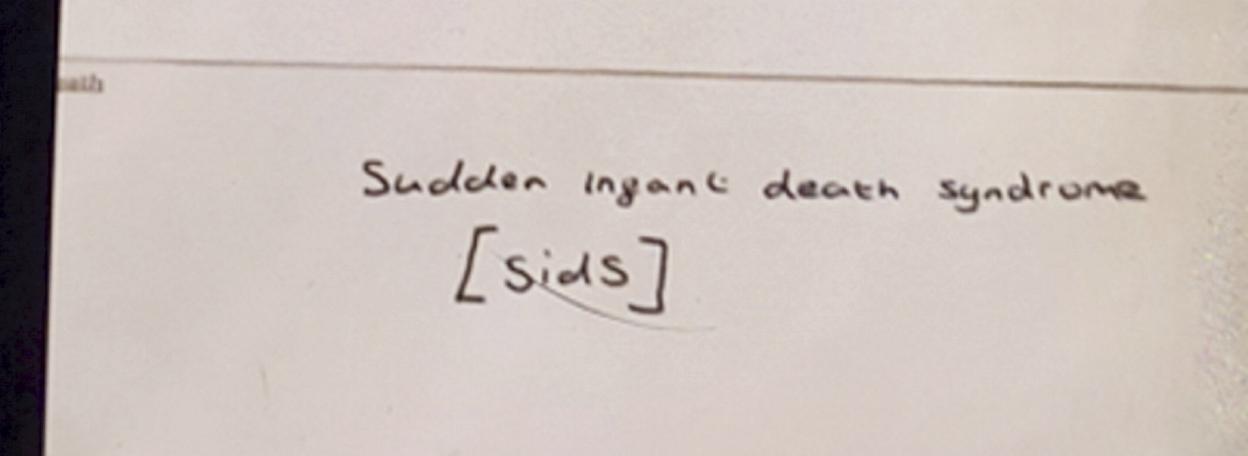 Sudden ingant death syndrome
[SidS]